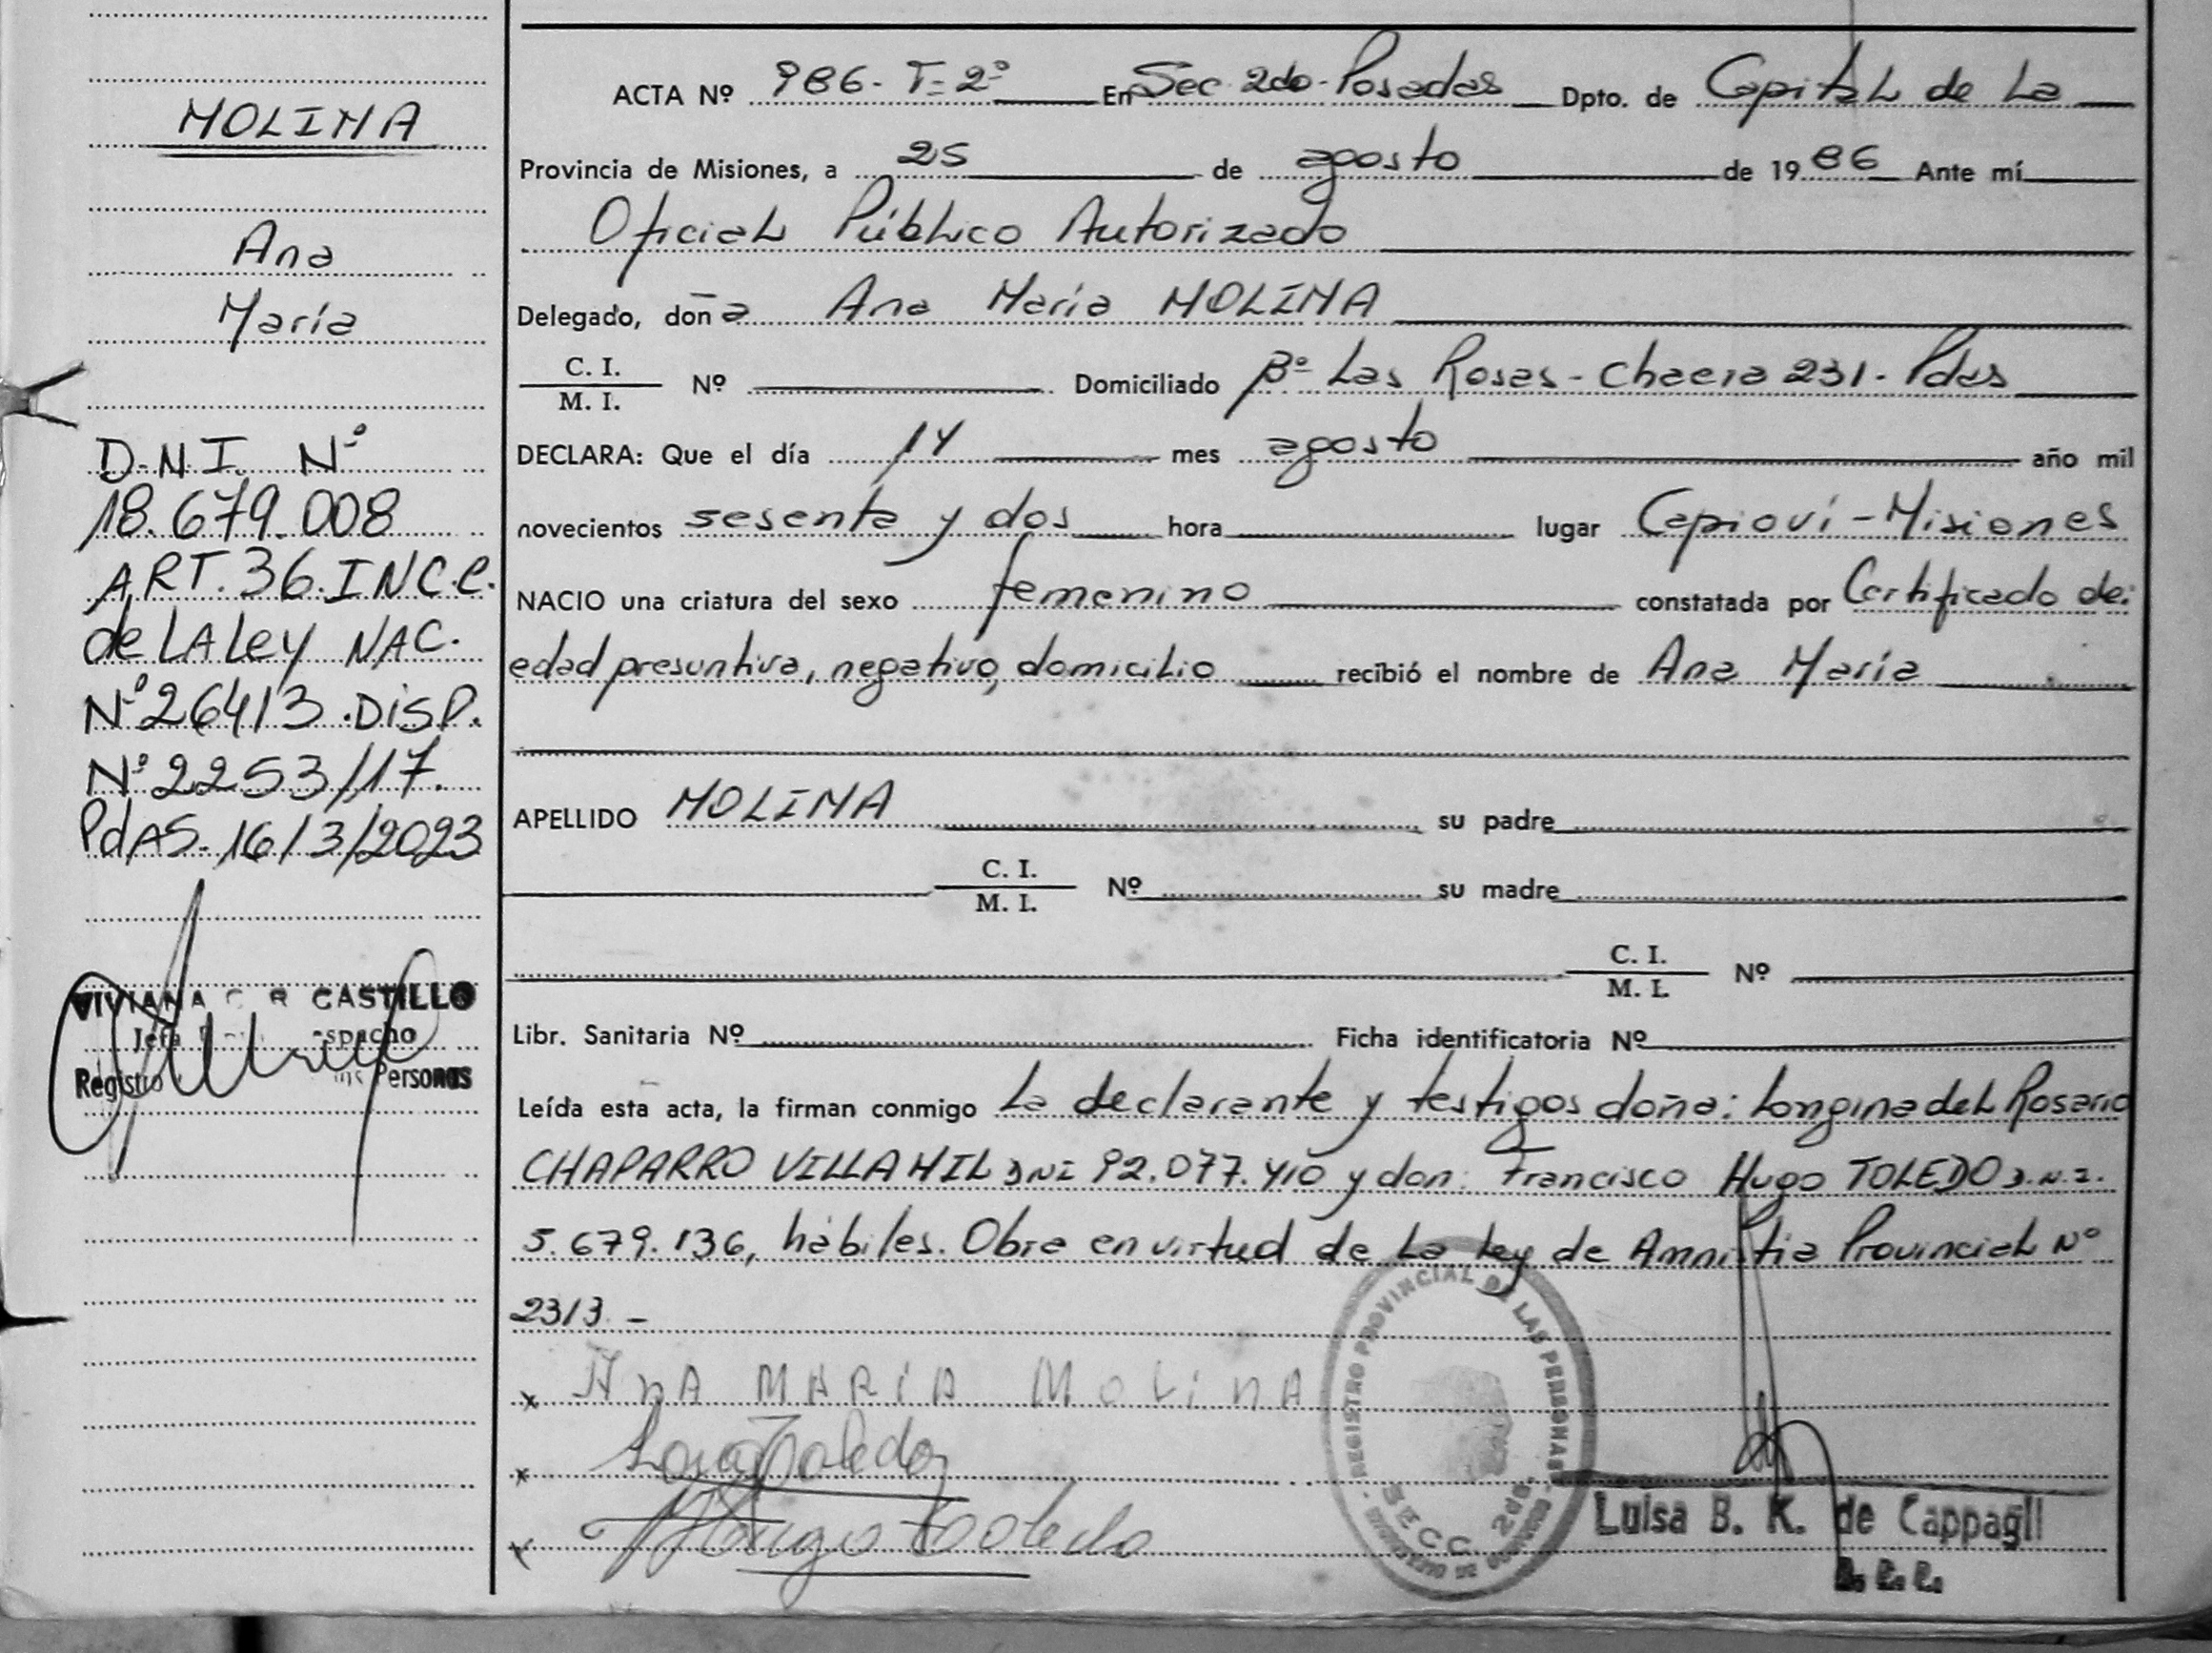 MOLINA
Ana
María
D.N.I. Nº
18.679.008
ART. 36. INC. C.
de LA Ley NAC.
Nº 26413. DISP.
Nº 2253/17.
PdAS. 16/3/2023
VIVIANA CASTILLO
Jefa
Registro Personas
ACTA Nº 986- T= 2º En Sec 2do- Posadas Dpto. de Capital de La
Provincia de Misiones, a 25 de agosto de 1986 Ante mí
Oficial Público Autorizado
Delegado, doña Ana María MOLINA
C. I.
M. I. Nº Domiciliado Bº Las Rosas - Chacra 231- Pdas
DECLARA: Que el día 14 mes agosto año mil
novecientos sesenta y dos hora lugar Capioví - Misiones
NACIO una criatura del sexo femenino constatada por Certificado de:
edad presuntiva, negativo, domicilio recibió el nombre de Ana María
APELLIDO MOLINA su padre
C. I.
M. I. Nº su madre
C. I.
M. I. Nº
Libr. Sanitaria Nº Ficha identificatoria Nº
Leída esta acta, la firman conmigo La declarante y testigos doña: Longina del Rosario
CHAPARRO DNI 92.077.410 y don: Francisco Hugo TOLEDO D.N.I.
5.679.136, hábiles. Obra en virtud de La Ley de Amnistia Provincial Nº
2313. -
x ANA MARIA MOLINA
x Toledo
x Hugo Toledo
REGISTRO PROVINCIAL DE LAS PERSONAS
MINISTERIO DE GOBIERNO
SECC. 2da.
Luisa B. K. de Cappagli